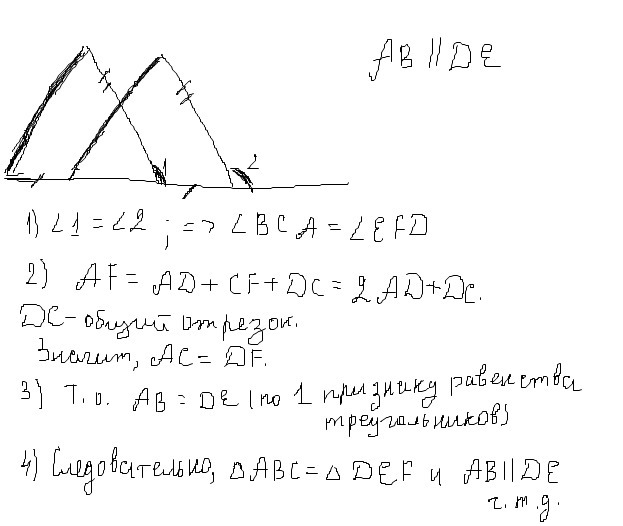 AB || DE
1 2
1) ∠1 = ∠2 ; => ∠BCA = ∠EFD
2) AF = AD + CF + DC = 2AD + DC.
DC - общий отрезок.
Значит, AC = DF.
3) Т.о. AB = DE (по 1 признаку равенства
треугольников)
4) Следовательно, △ABC = △DEF и AB || DE
ч.т.д.